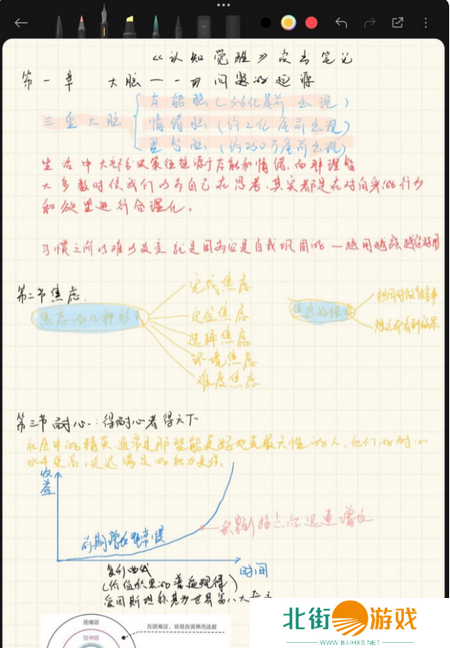 《认知觉醒》读书笔记
第一章 大脑——一切问题的起源
三重大脑
本能脑(3.6亿年前出现)
情绪脑(约2亿年前出现)
理智脑(约250万年前出现)
生活中大部分决策往往源于本能和情绪,而非理智
大多数时候我们以为自己在思考,其实都是在对自身的行为
和欲望进行合理化。
习惯之所以难以改变,就是因为它是自我巩固的——越用越强,越强越用
第二节 焦虑
焦虑的几种形式
完成焦虑
定位焦虑
选择焦虑
环境焦虑
难度焦虑
焦虑的根源
想同时做很多事
想立即看到效果
第三节 耐心:得耐心者得天下
社会中的精英通常是那些能更好地克服天性的人,他们的耐心
水平更高,延迟满足的能力更强
收益
前期增长非常缓慢
到拐点后迅速增长
时间
复利曲线
(价值积累的普遍规律)
爱因斯坦称其为世界第八大奇迹
困难区
拉伸区
在困难区,容易因畏惧而逃避
北街游戏
WWW.BJJHXS.NET